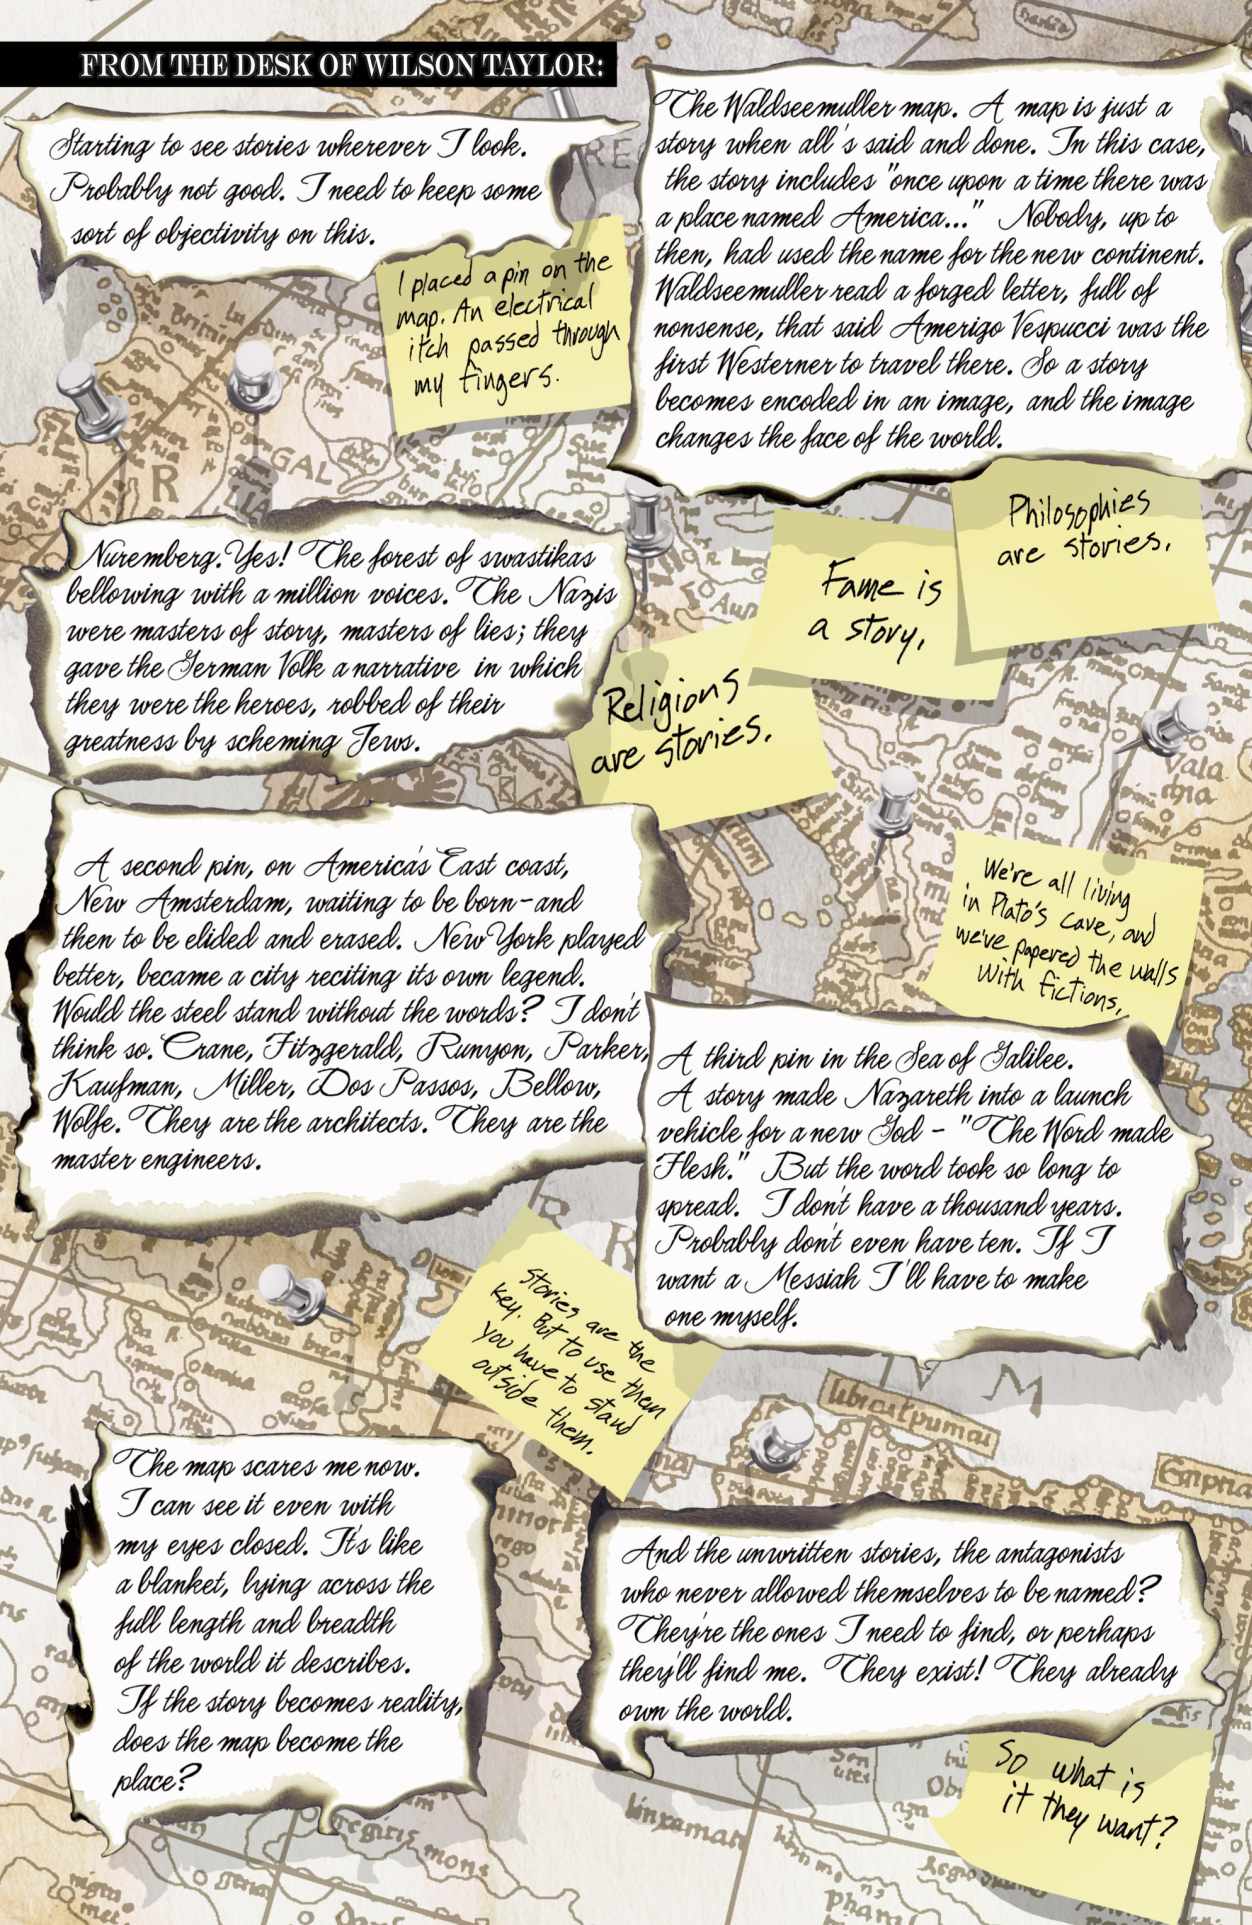 FROM THE DESK OF WILSON TAYLOR:
Starting to see stories wherever I look.
Probably not good. I need to keep some
sort of objectivity on this.
I placed a pin on the
map. An electrical
itch passed through
my fingers.
The Waldseemuller map. A map is just a
story when all's said and done. In this case,
the story includes "once upon a time there was
a place named America..." Nobody, up to
then, had used the name for the new continent.
Waldseemuller read a forged letter, full of
nonsense, that said Amerigo Vespucci was the
first Westerner to travel there. So a story
becomes encoded in an image, and the image
changes the face of the world.
Nuremberg. Yes! The forest of swastikas
bellowing with a million voices. The Nazis
were masters of story, masters of lies; they
gave the German Volk a narrative in which
they were the heroes, robbed of their
greatness by scheming Jews.
Philosophies
are stories.
Fame is
a story.
Religions
are stories.
A second pin, on America's East coast,
New Amsterdam, waiting to be born-and
then to be elided and erased. New York played
better, became a city reciting its own legend.
Would the steel stand without the words? I don't
think so. Crane, Fitzgerald, Runyon, Parker,
Kaufman, Miller, Dos Passos, Bellow,
Wolfe. They are the architects. They are the
master engineers.
We're all living
in Plato's cave, and
we've papered the walls
with fictions.
A third pin in the Sea of Galilee.
A story made Nazareth into a launch
vehicle for a new God - "The Word made
Flesh." But the word took so long to
spread. I don't have a thousand years.
Probably don't even have ten. If I
want a Messiah I'll have to make
one myself.
Stories are the
key. But to use them
you have to stand
outside them.
The map scares me now.
I can see it even with
my eyes closed. It's like
a blanket, lying across the
full length and breadth
of the world it describes.
If the story becomes reality,
does the map become the
place?
And the unwritten stories, the antagonists
who never allowed themselves to be named?
They're the ones I need to find, or perhaps
they'll find me. They exist! They already
own the world.
So what is
it they want?